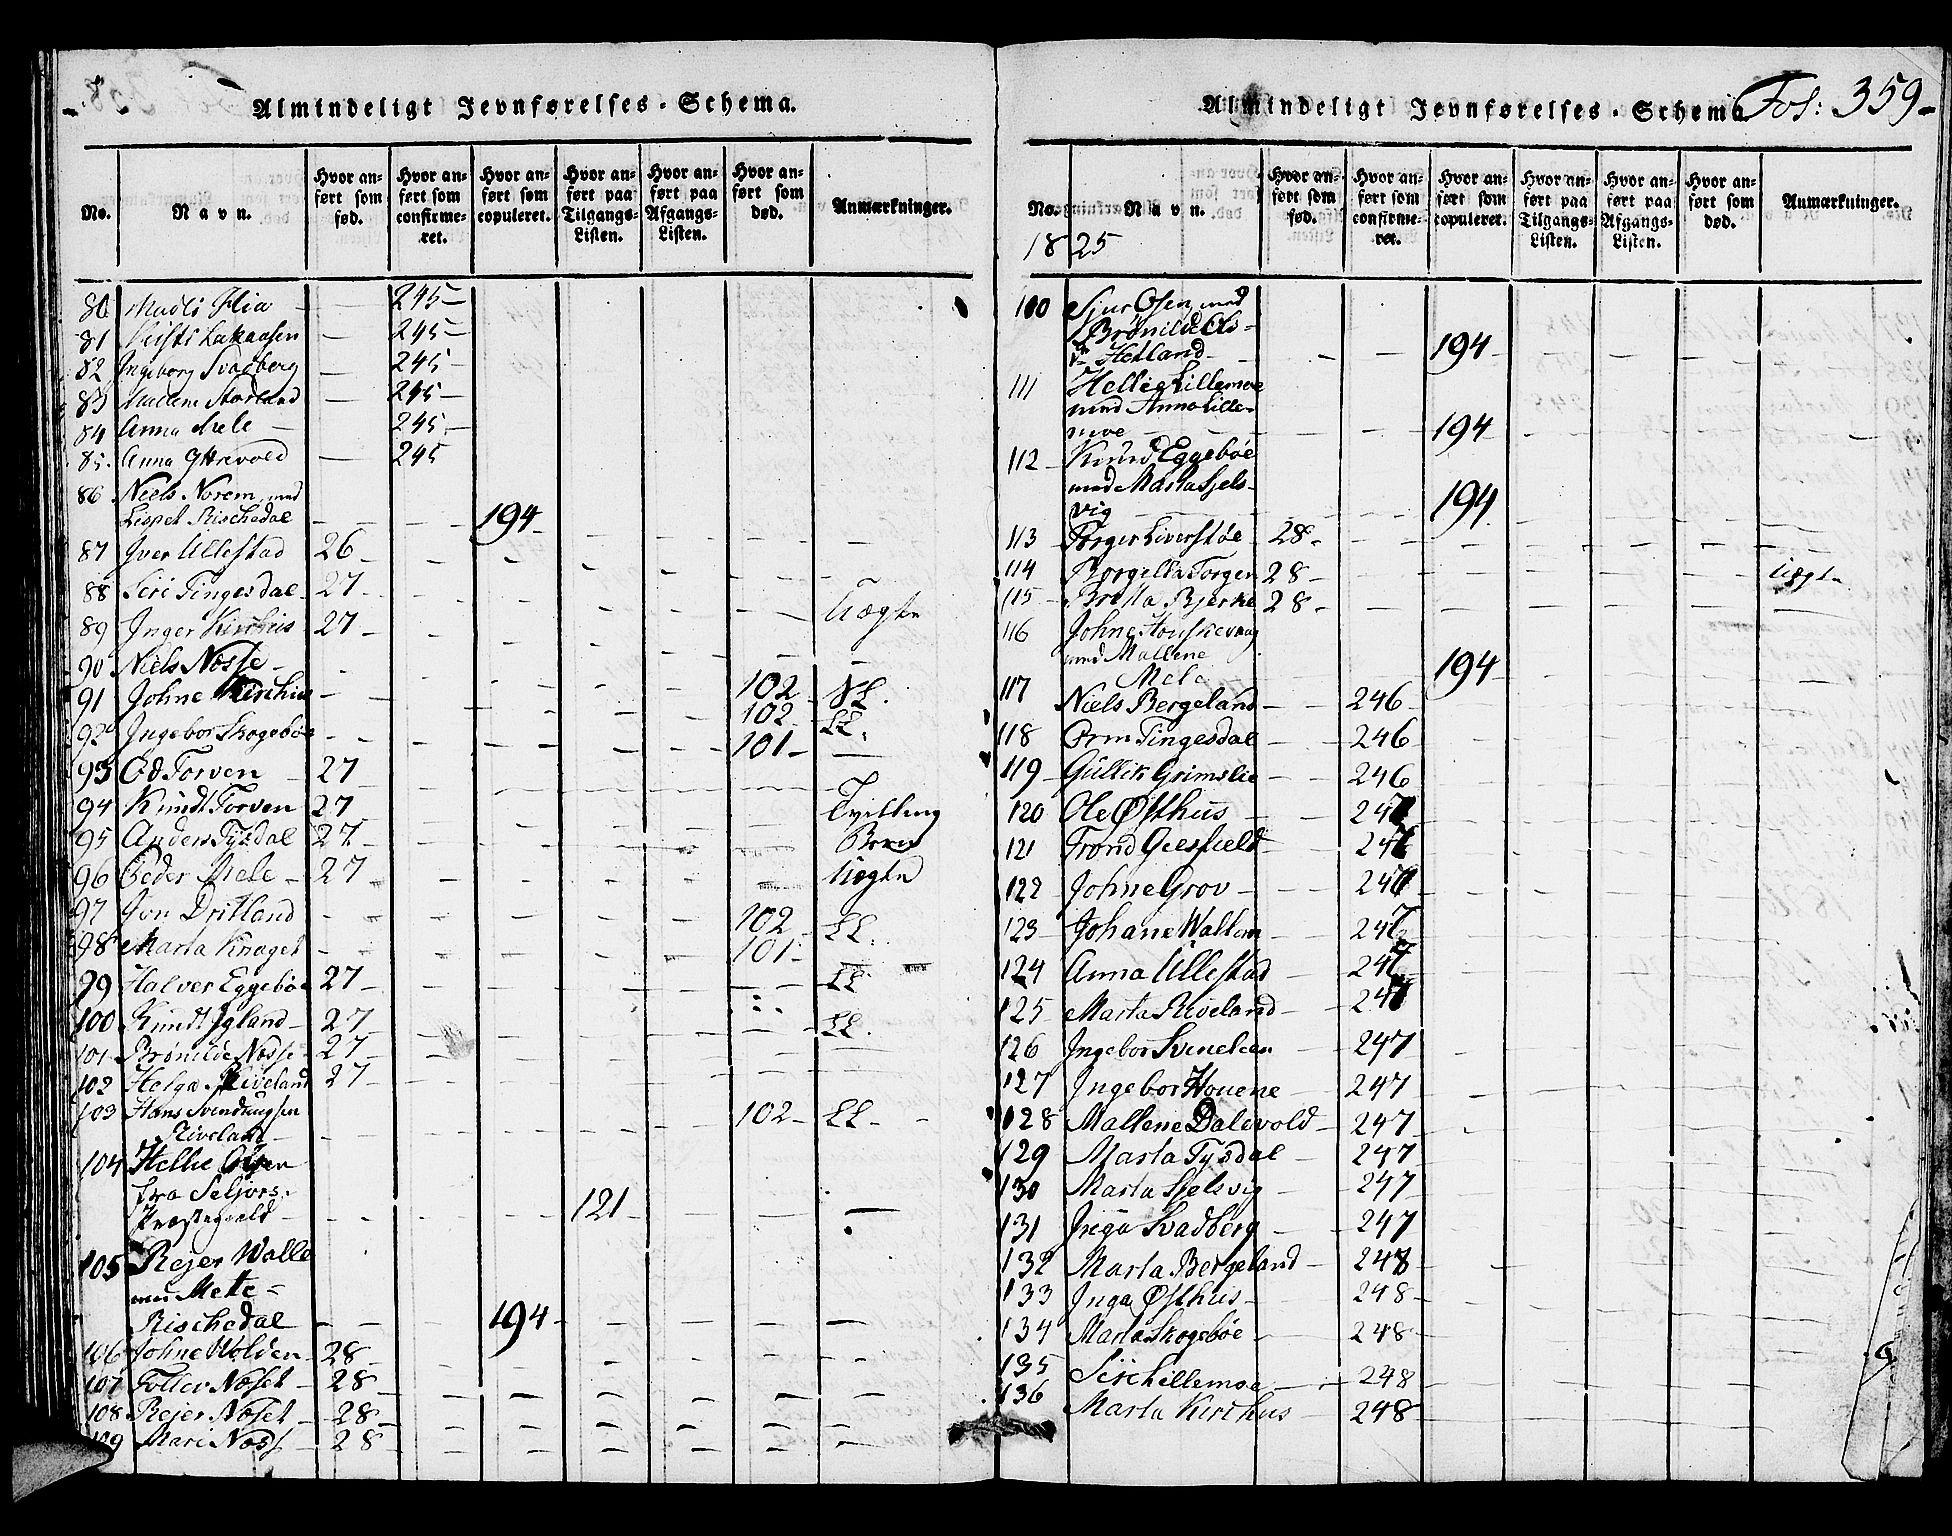 Almindeligt Jevnførelses-Schema.
No.
Navn.
Hvor anført som fød.
Hvor anført som confirmeret.
Hvor anført som copuleret.
Hvor anført paa Tilgangs-Listen.
Hvor anført paa Afgangs-Listen.
Hvor anført som død.
Anmærkninger.
80 Flia - 245-
81 245-
82 Ingeborg Svadberg - 245-
83 - 245-
84 Anna Mele - 245-
85. Anna - 245
86 Niels Norem med
Lispet Rischedal - 194-
87 Iver Ullestad 26-
88 Siri Tingesdal 27-
89 Inger Kirchus 27-
90 Niels Nosse -
91 Johne Kirchus - 102
92 Ingebor Skogeboe - 102 LL.
101-
93 Od Torven - 27
94 Knudt Torven 27 Tvilling
95 Anders Tysdal 27- Børn
96 Peder Mele - 27-
97 Jon Dritland - 102- LL.
98 Marta Knaget - 101-
99 Halver Eggeboe 27- LL
100 Knudt Igland - 27- LL.
101 Brønilde Nosse - 27-
102 Helga Riveland 27-
103 Hans Svendungsen
Riveland - 102- LL-
104 Hellie Olsen
fra Seljors
Præstegield - 121
105 Rejer Walle
med Mette -
Rischedal - 194-
106 Johne Wolden - 28-
107 Tollev Noset - 28-
108 Rejer Noset - 28-
109 Mari Noss - 28-
Almindeligt Jevnførelses-Schema
Fol: 359-
No.
Navn.
Hvor anført som fød.
Hvor anført som confirmeret.
Hvor anført som copuleret.
Hvor anført paa Tilgangs-Listen.
Hvor anført paa Afgangs-Listen.
Hvor anført som død.
Anmærkninger.
1825
110 Sjur Osen med
Brønilde Ols-
Hetland - 194-
111 Hellie Lillemoe
med Anna Lille-
moe - 194
112 Knud Eggeböe
med Marta Sjels-
vig - 194
113 Torger Liverstøe 28-
114 Borgella Torgen 28-
115 Britta Bjerke 28-
116 Johne
med Mallene
Mele 194
117 Niels Bergeland - 246-
118 Orm Tingesdal - 246
119 Gullik Grimslie - 246
120 Ole Østhus - 247
121 Trond - 247
122 Johne Grov - 247
123 Johane Wallem - 247
124 Anna Ullestad - 247
125 Marta Riveland - 247
126 Ingebor - 247
127 Ingebor Houene - 247
128 Mallene Dalevold - 247-
129 Marta Tysdal - 247
130 Marta Sjelsvig - 247
131 Inga Svadberg - 247
132 Marta Bergeland - 248
133 Inga Østhus - 248-
134 Marta Skogeböe - 248-
135 Siri Lillemoe - 248
136 Marta Kirchus - 248